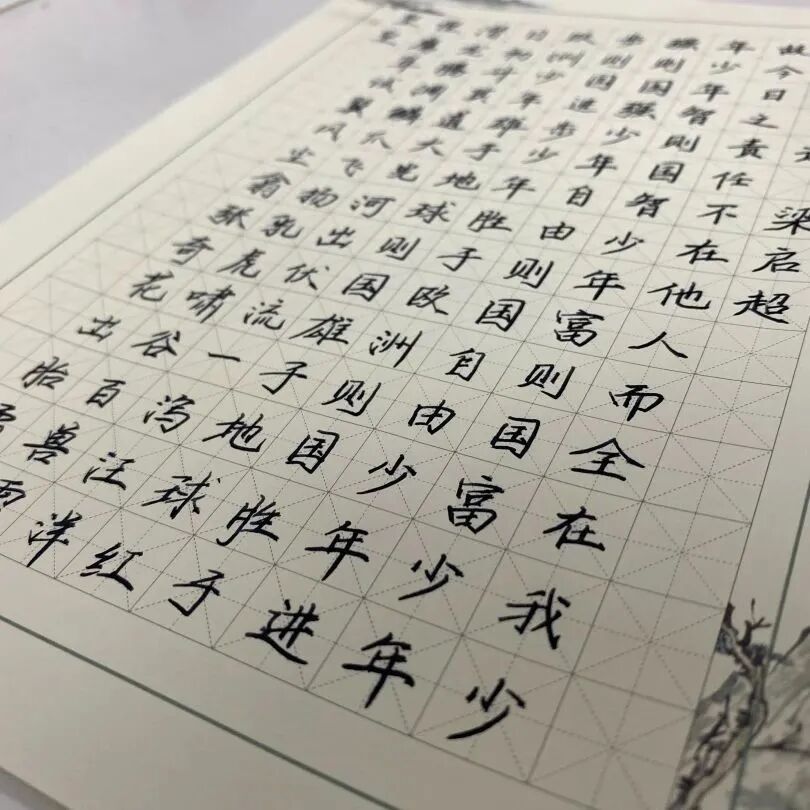 梁启超
故今日之责任不在他人而全在我少
年少年智则国智少年富则国富少年
强则国强少年自由则国自由少年进
步则国进步少年胜于欧洲则国胜于
欧洲少年雄于地球则国雄于地球红
日初升其道大光河出伏流一泻汪洋
潜龙腾渊鳞爪飞扬乳虎啸谷百兽
鹰隼试翼风尘翕张奇花出胎